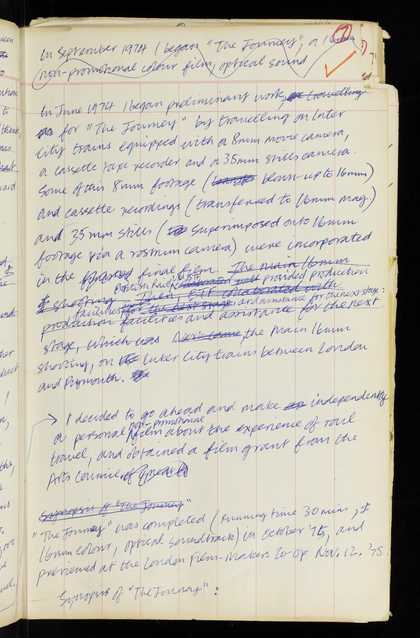 In September 1974 I began "The Journey", a 16mm
non-promotional colour film, optical sound
In June 1974 I began preliminary work travelling
for "The Journey" by travelling on Inter
City trains equipped with a 8mm movie camera,
a cassette tape recorder and a 35mm stills camera.
Some of this 8mm footage ( blown-up to 16mm)
and cassette recordings (transferred to 16mm mag.)
and 35mm stills ( superimposed onto 16mm
footage via a rostrum camera) were incorporated
in the final film. The main 16mm
shooting provided production
Then collaborated with
facilities for the next stage and assistance for the next stage:
production facilities and assistance for the next
stage, which was the main 16mm
shooting, on Inter City trains between London
and Plymouth.
I decided to go ahead and make independently
a personal non-promotional film about the experience of rail
travel, and obtained a film grant from the
Arts Council of
Synopsis of "The Journey"
"The Journey" was completed (running time 30 mins,
16mm colour, optical soundtrack) in October '75, and
previewed at the London Film-Makers Co-op Nov. 12, '75
Synopsis of "The Journey":